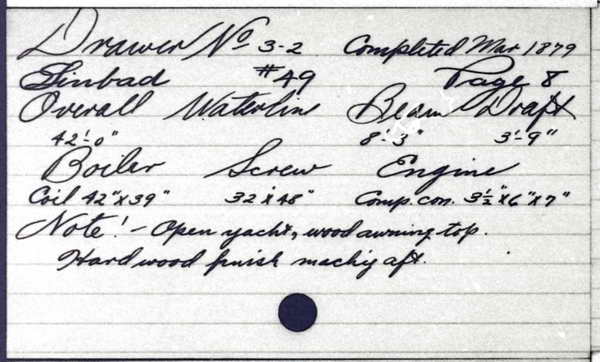 Drawer No 3-2 Completed Mar 1879
Sinbad #49 Page 8
Overall Waterlin Beam Draft
42'-0" 8'-3" 3'-9"
Boiler Screw Engine
Coil 42"x39" 32"x48" Comp. con. 3½"x6"x7"
Note! - Open yacht, wood awning top.
Hard wood finish machiy aft.